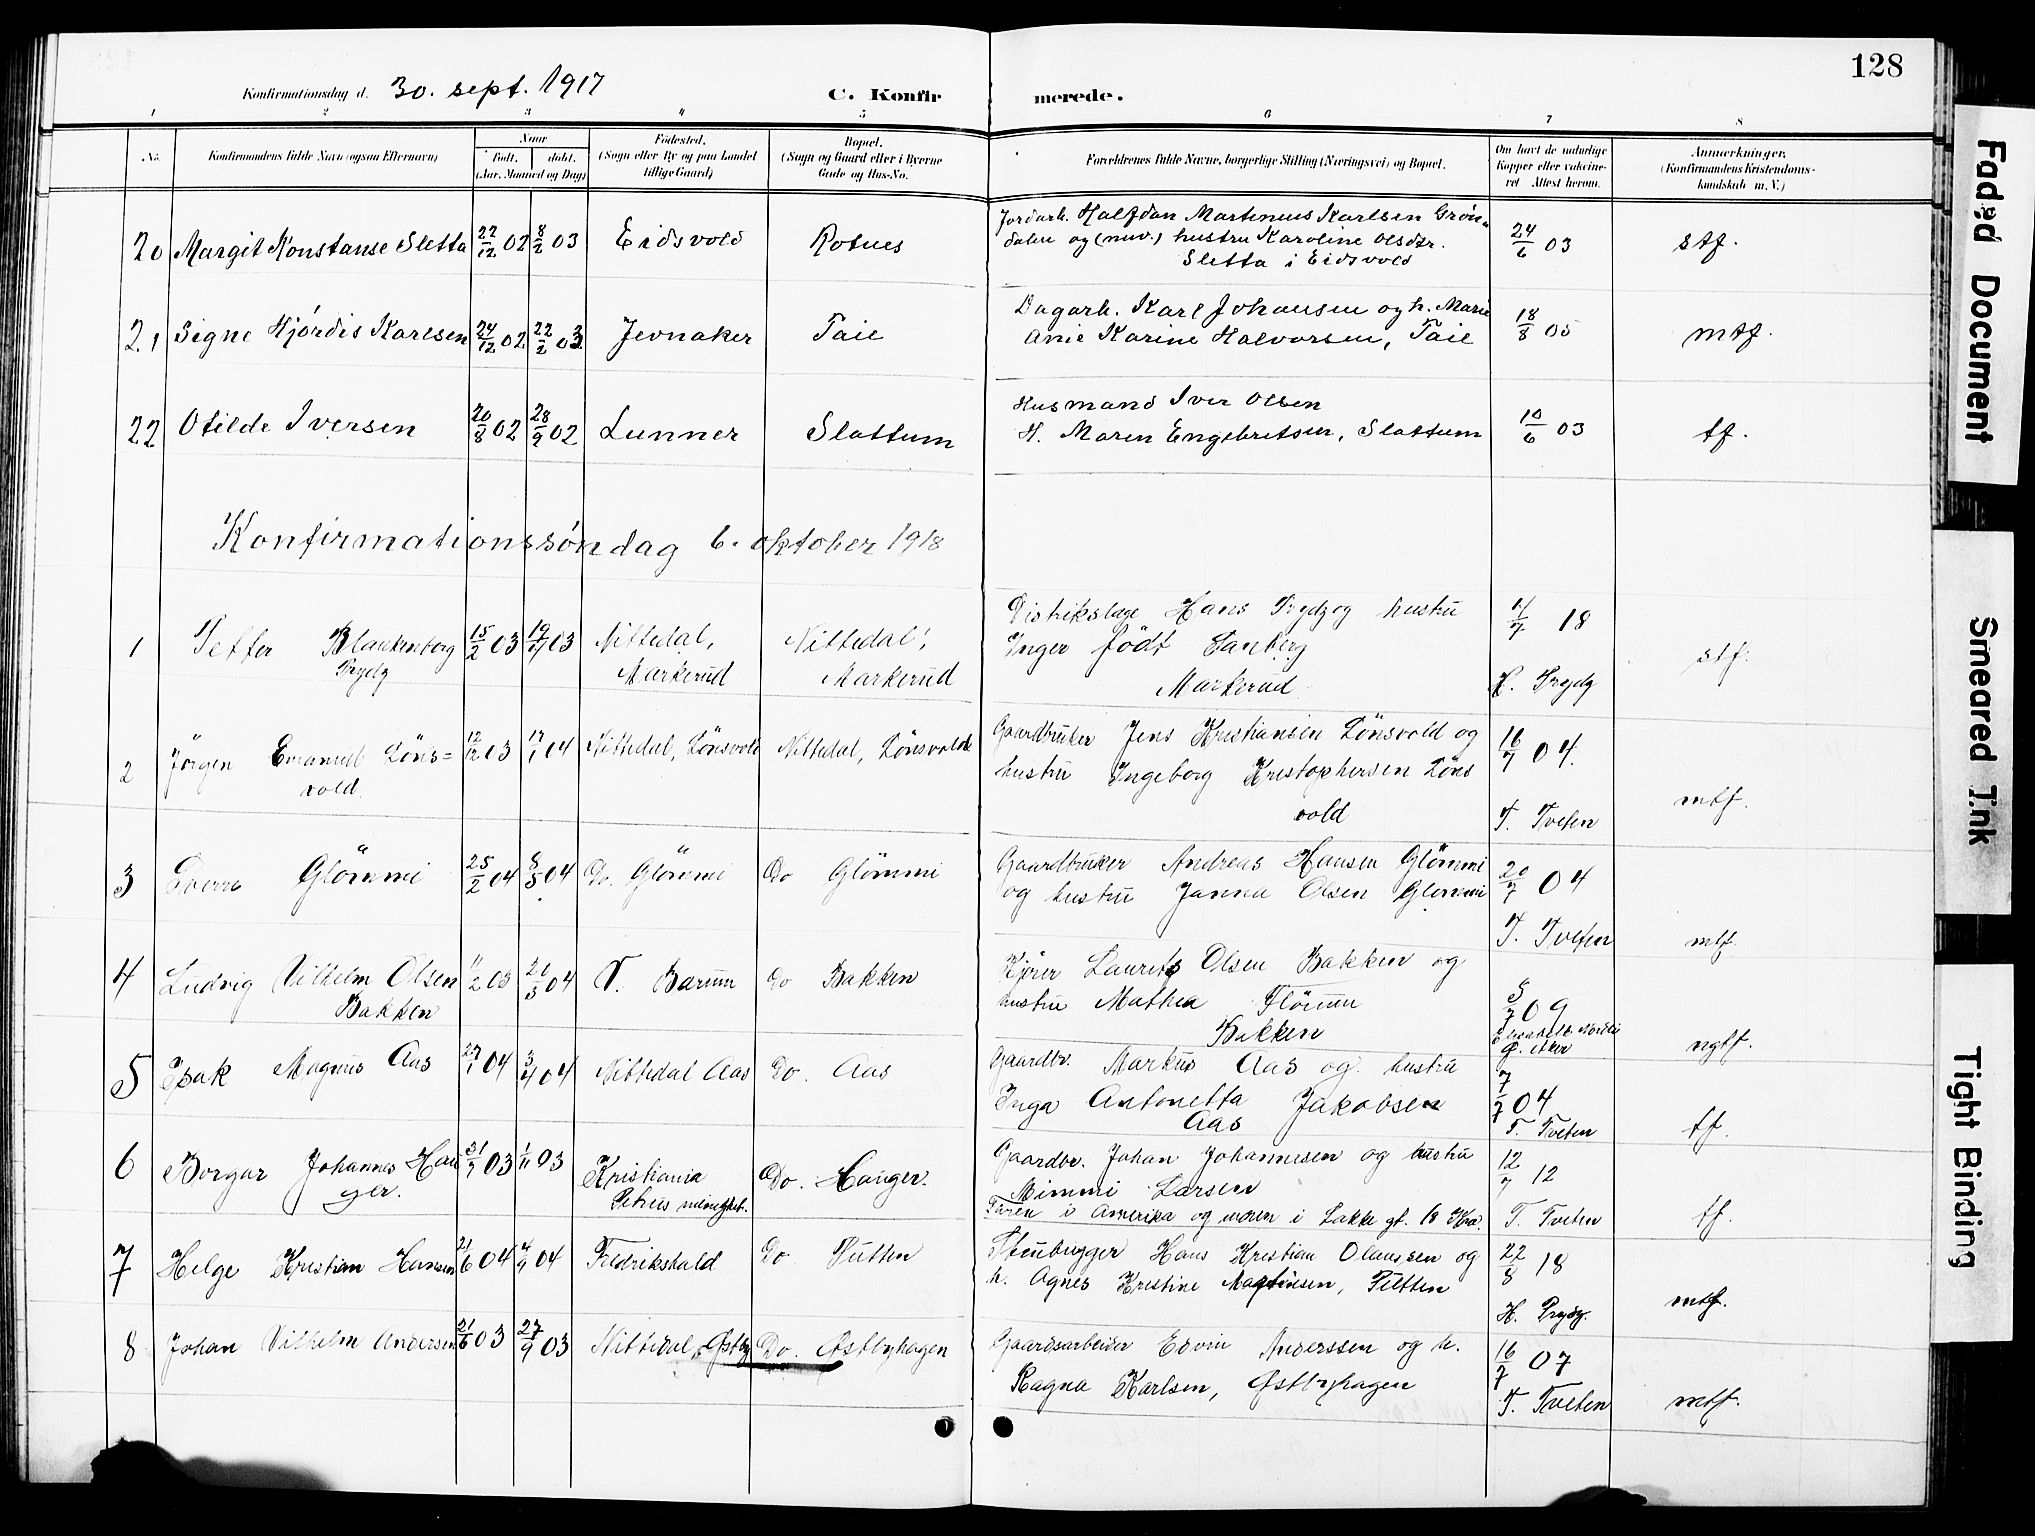 128
Konfirmationsdag d. 30. sept. 1917
C. Konfirmerede.
1 2 3 4 5 6 7 8
No. Konfirmandens fulde Navn (ogsaa Efternavn) Naar Født. døbt. (Aar, Maaned og Dag)
Fødested. (Sogn eller By og paa Landet tillige Gaard)
Bopæl. (Sogn og Gaard eller i Byerne Gade og Hus-No.
Forældrenes fulde Navne, borgerlige Stilling (Næringsvei) og Bopæl.
Om havt de naturlige Kopper eller vakcineret Attest herom.
Anmærkninger, (Konfirmandens Kristendomskundskab m. V.)
20 Margit Konstanse Sletta 22/12 02 8/2 03 Eidsvold Rotnes
Jordarb. Halfdan Martinius Karlsen Grøn-
dalen og (nuv.) hustru Karoline Olsdtr.
Sletta i Eidsvold
24/6 03 stf.
21 Signe Hjórdis Karlsen 24/12 02 22/2 03 Jevnaker Taie
Dagarb. Karl Johansen og h. Marie
Anie Karine Halvorsen, Taie
18/8 05 mtf.
22 Otilde Iversen 20/8 02 28/9 02 Lunner Slattum
Husmand Iver Olsen
H. Maren Engebretsen, Slattum
10/6 03 tf.
Konfirmationssóndag 6. oktober 1918
1 Petter Blankenborg
Prydz
15/2 03 19/4 03 Nittedal, Markerud
Nittedal, Markerud
Distrikslæge Hans Prydz og hustru
Inger født Sanberg
Markerud
4/7 18
H. Prydz
stf.
2 Jörgen Emanuel Löns=
vold.
12/12 03 17/1 04 Nittedal, Lönsvold Nittedal, Lönsvold
Gaardbruker Jens Kristiansen Lönsvold og
hustru Ingeborg Kristophersen Löns
vold
16/7 04.
T. Tveten
mtf.
3 Sverre Glömmi 25/2 04 8/5 04 Do. Glömmi Do Glömmi
Gaardbruker Andreas Hansen Glömmi
og hustru Janna Olsen Glömmi
20/7 04
T. Tveten
mtf.
4 Ludvig Vilhelm Olsen
Bakken
11/2 03 21/3 04 V. Barum Do Bakken
Kjörer Laurits Olsen Bakken og
hustru Mathea
Bakken
5/7 09
ngtf.
5 Isak Magnus Aas 27/1 04 3/4 04 Nittedal Aas Do. Aas
Gaardbr. Markus Aas og hustru
Inga Antonetta Jakobsen
Aas
7/7 04
T. Tveten
tf.
6 Borgar Johannes Hau
ger.
31/7 03 1/11 03 Kristiania
Petrus menighet. Do. Hauger.
Gaardbr. Johan Johannesen og hustru
Mimmi Larsen
Faren i Amerika og moren i Lakke gt. 18 Kra.
12/7 12
T. Tveten
tf.
7 Helge Kristian Hansen 21/6 04 4/9 04 Fredrikshald Do
Stenhugger Hans Kristian Olaussen og
h. Agnes Kristine Martinsen,
22/8 18
H. Prydz.
mtf.
8 Johan Vilhelm Andersen 21/6 03 27/9 03 Nittedal, Østby Do. Østbyhagen
Gaardsarbeider Edvin Anderssen og h.
Ragna Karlsen, Østbyhagen
16/7 07
T. Tveten
mtf.
Faded Document
Smeared Ink
Tight Binding